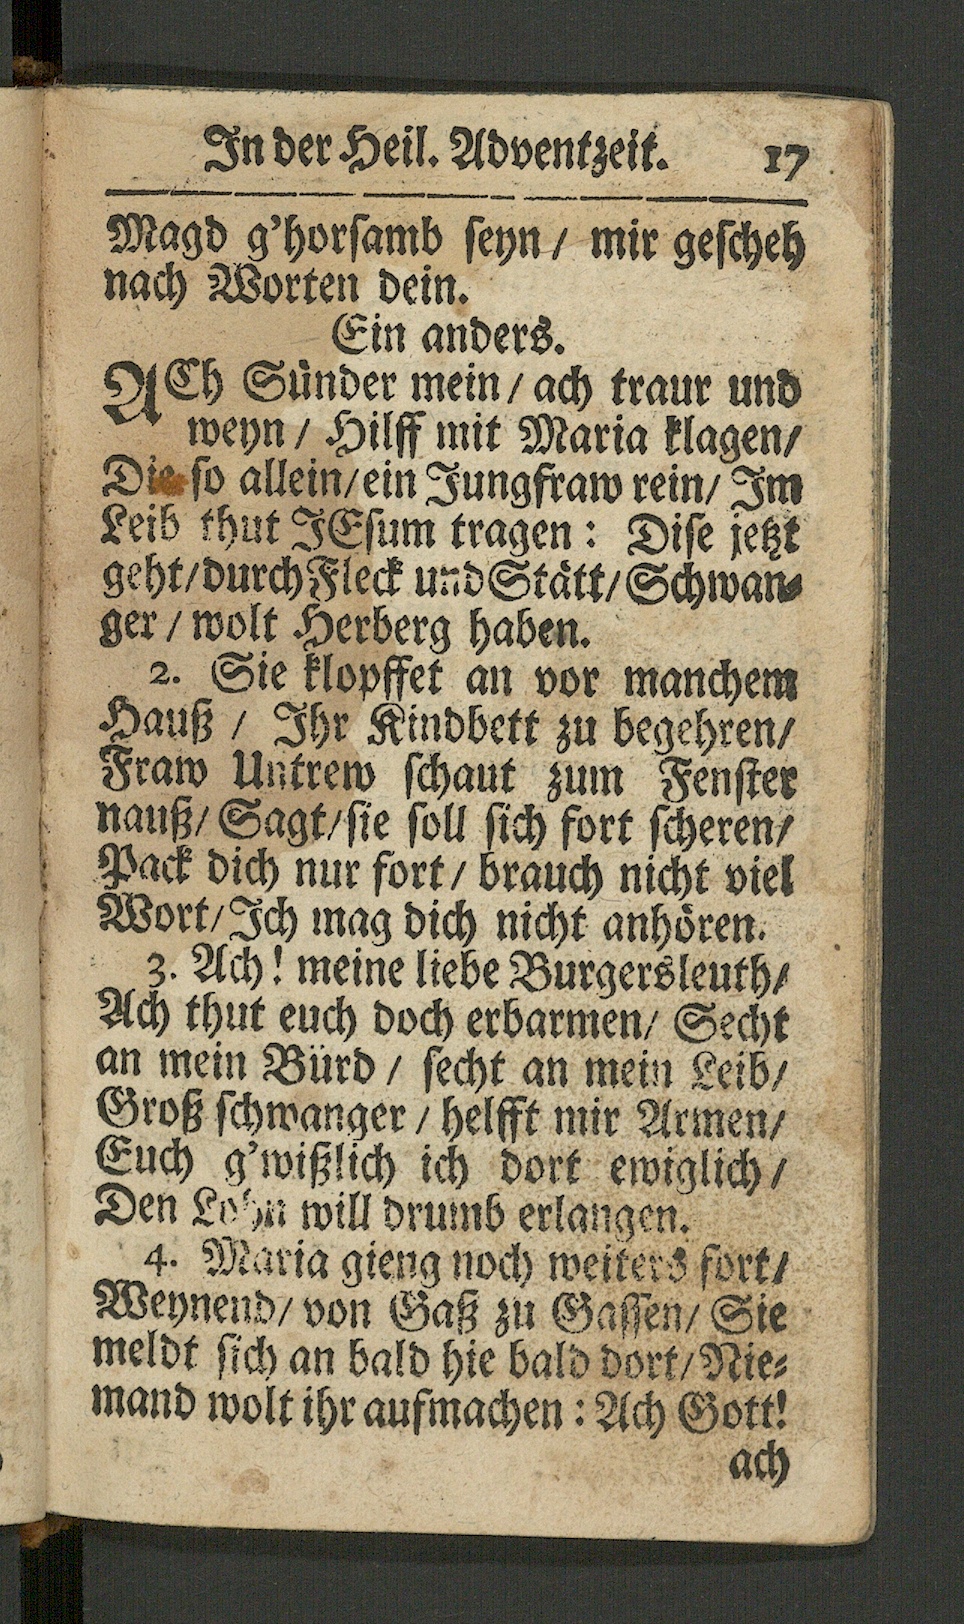 In der Heil. Adventzeit. 17
Magd g'horsamb seyn / mir gescheh
nach Worten dein.
Ein anders.
ACh Sünder mein / ach traur und
weyn / Hilff mit Maria klagen /
Die so allein / ein Jungfraw rein / Im
Leib thut JEsum tragen : Dise jetzt
geht / durch Fleck und Stätt / Schwan⸗
ger / wolt Herberg haben.
2. Sie klopffet an vor manchem
Hauß / Ihr Kindbett zu begehren /
Fraw Untrew schaut zum Fenster
nauß / Sagt / sie soll sich fort scheren /
Pack dich nur fort / brauch nicht viel
Wort / Ich mag dich nicht anhören.
3. Ach ! meine liebe Burgersleuth /
Ach thut euch doch erbarmen / Secht
an mein Bürd / secht an mein Leib /
Groß schwanger / helfft mir Armen /
Euch g'wißlich ich dort ewiglich /
Den Lohn will drumb erlangen.
4. Maria gieng noch weiters fort /
Weynend / von Gaß zu Gassen / Sie
meldt sich an bald hie bald dort / Nie⸗
mand wolt ihr aufmachen : Ach Gott !
ach